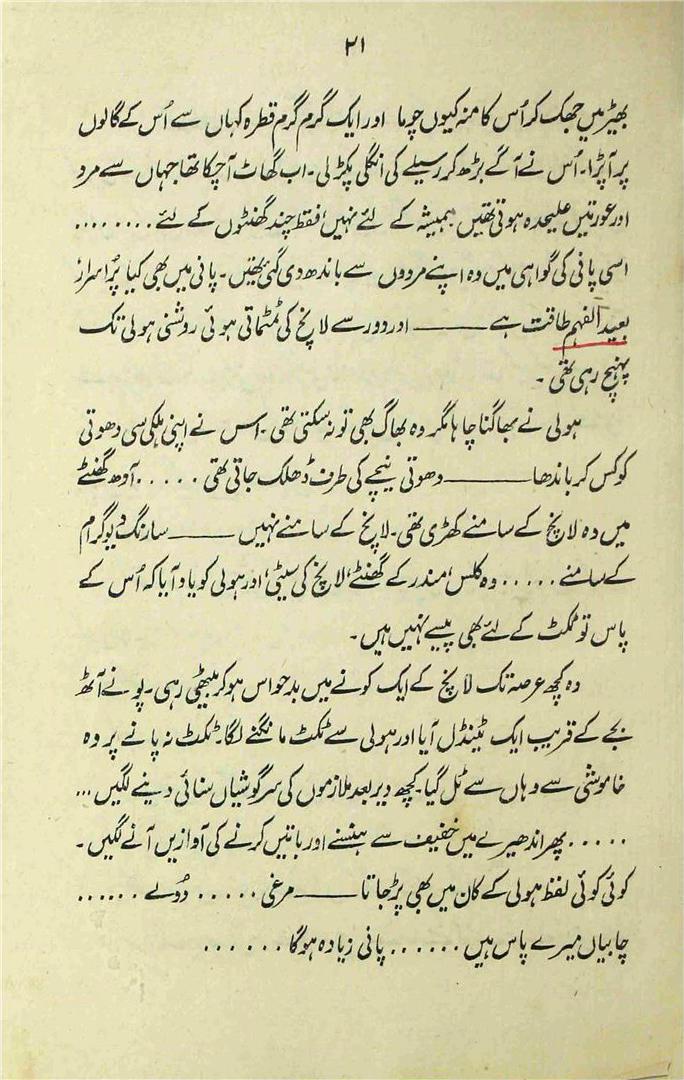 ۲۱
بھیڑ میں جھک کر اُس کا منہ کیوں چوما اور ایک گرم گرم قطرہ کہاں سے اُس کے گالوں
پر آپڑا۔ اُس نے آگے بڑھ کر رسیلے کی انگلی پکڑ لی۔ اب گھاٹ آچکا تھا جہاں سے مرد
اور عورتیں علیحدہ ہوتی تھیں ہمیشہ کے لئے نہیں، فقط چند گھنٹوں کے لئے ........
اسی پانی کی گواہی میں وہ اپنے مردوں سے باندھ دی گئی تھیں۔ پانی میں بھی کیا پُراسرار
بعید الفہم طاقت ہے ——— اور دور سے لانچ کی ٹمٹماتی ہوئی روشنی ہولی تک
پہنچ رہی تھی۔
ہولی نے بھاگنا چاہا مگر وہ بھاگ بھی تو نہ سکتی تھی۔ اس نے اپنی ہلکی سی دھوتی
کو کس کر باندھا ——— دھوتی نیچے کی طرف ڈھلک جاتی تھی ..... آدھ گھنٹے
میں وہ لانچ کے سامنے کھڑی تھی۔ لانچ کے سامنے نہیں ——— سارنگ دیو گرام
کے سامنے ..... وہ کلس، مندر کے گھنٹے، لانچ کی سیٹی، اور ہولی کو یاد آیا کہ اُس کے
پاس تو ٹکٹ کے لئے بھی پیسے نہیں ہیں۔
وہ کچھ عرصہ تک لانچ کے ایک کونے میں بدحواس ہو کر بیٹھی رہی۔ پونے آٹھ
بجے کے قریب ایک ٹینڈل آیا اور ہولی سے ٹکٹ مانگنے لگا۔ ٹکٹ نہ پانے پر وہ
خاموشی سے وہاں سے ٹل گیا۔ کچھ دیر بعد ملازموں کی سرگوشیاں سنائی دینے لگیں ...
..... پھر اندھیرے میں خفیف سے ہنسنے اور باتیں کرنے کی آوازیں آنے لگیں۔
کوئی کوئی لفظ ہولی کے کان میں بھی پڑ جاتا ——— مرغی ..... دُولے ......
چابیاں میرے پاس ہیں ...... پانی زیادہ ہوگا ......